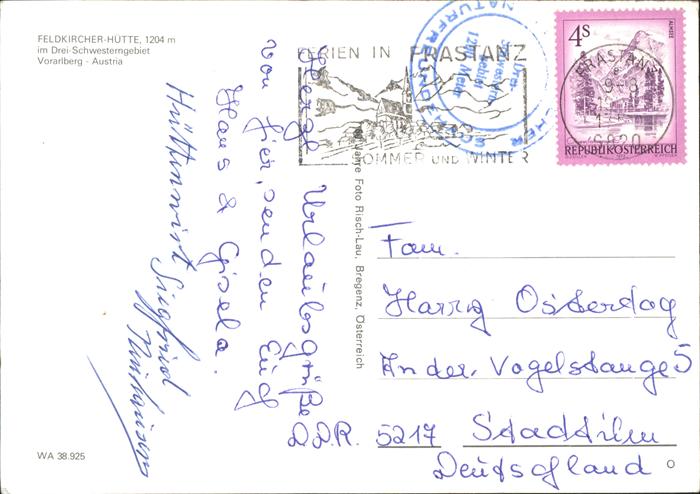 FELDKIRCHER-HÜTTE, 1204 m
im Drei-Schwesterngebiet
Vorarlberg - Austria
FERIEN IN FRASTANZ
SOMMER UND WINTER
NATURFREUNDE
Drei-
Schwestern-
gebiet
Meter
4 S
ALMSEE
FRASTANZ
6820
REPUBLIK ÖSTERREICH
Herzl. Urlaubsgrüße
von hier, senden Euch
Hans & Gisela.
Hüttenwirt Siegfried
Jahre Foto Risch-Lau, Bregenz, Österreich
Fam.
Harry Osterdag
An der Vogelstange 5
D.D.R. 5217 Stadtilm
Deutschland
WA 38.925